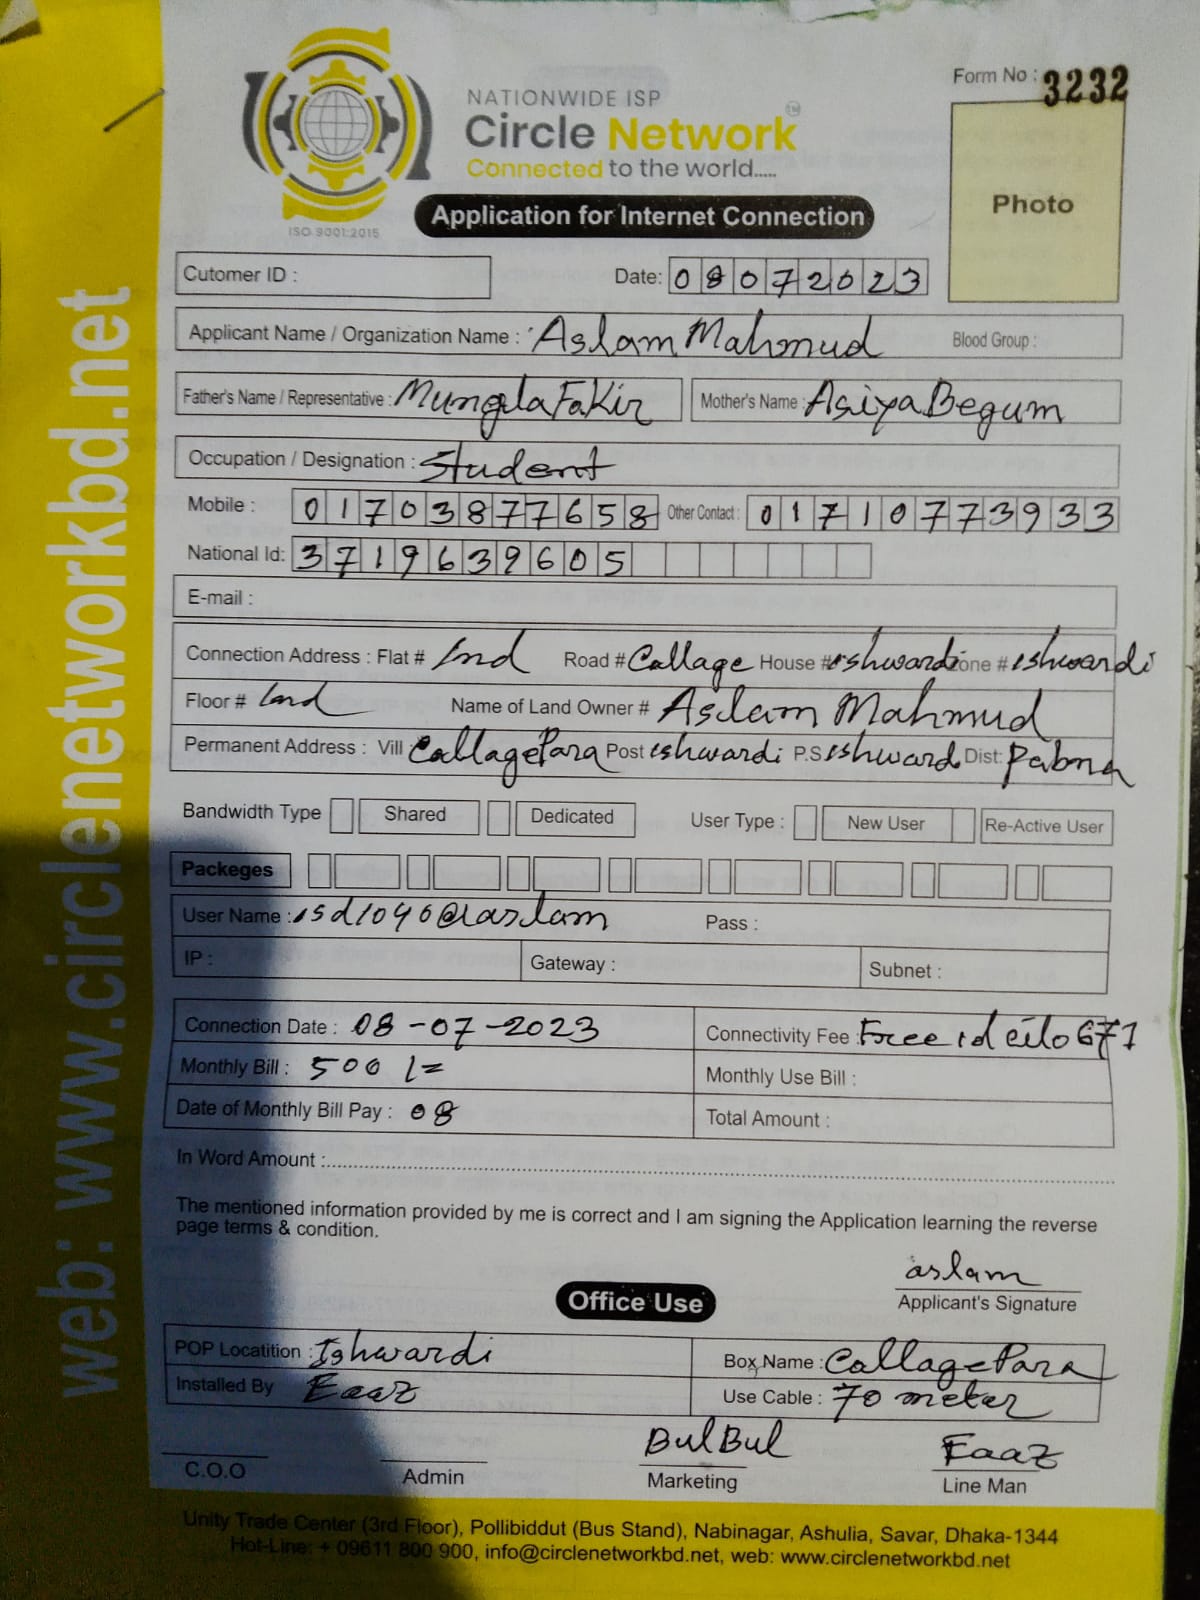 Form No : 3232
NATIONWIDE ISP
Circle Network
Connected to the world.....
ISO 9001:2015
Photo
Application for Internet Connection
Cutomer ID :
Date: 08072023
Applicant Name / Organization Name : Aslam Mahmud Blood Group :
Father's Name / Representative : Mungla Fakir Mother's Name : Asiya Begum
Occupation / Designation : Student
Mobile : 01703877658 Other Contact : 01710773933
National Id: 3719639605
E-mail :
Connection Address : Flat # Road # Callage House # ishwardi Zone # ishwardi
Floor # Name of Land Owner # Aslam Mahmud
Permanent Address : Vill Callage Para Post ishwardi P.S ishward Dist: Pabna
Bandwidth Type Shared Dedicated User Type : New User Re-Active User
Packeges
User Name : isd1040@aslam Pass :
IP : Gateway : Subnet :
Connection Date : 08-07-2023 Connectivity Fee : Free id 671
Monthly Bill : 500/= Monthly Use Bill :
Date of Monthly Bill Pay : 08 Total Amount :
In Word Amount :
The mentioned information provided by me is correct and I am signing the Application learning the reverse
page terms & condition.
aslam
Applicant's Signature
Office Use
POP Locatition : Ishwardi Box Name : Callage Para
Installed By Eaaz Use Cable : 70 meter
BulBul Eaaz
C.O.O Admin Marketing Line Man
Unity Trade Center (3rd Floor), Pollibiddut (Bus Stand), Nabinagar, Ashulia, Savar, Dhaka-1344
Hot-Line: + 09611 800 900, info@circlenetworkbd.net, web: www.circlenetworkbd.net
web: www.circlenetworkbd.net